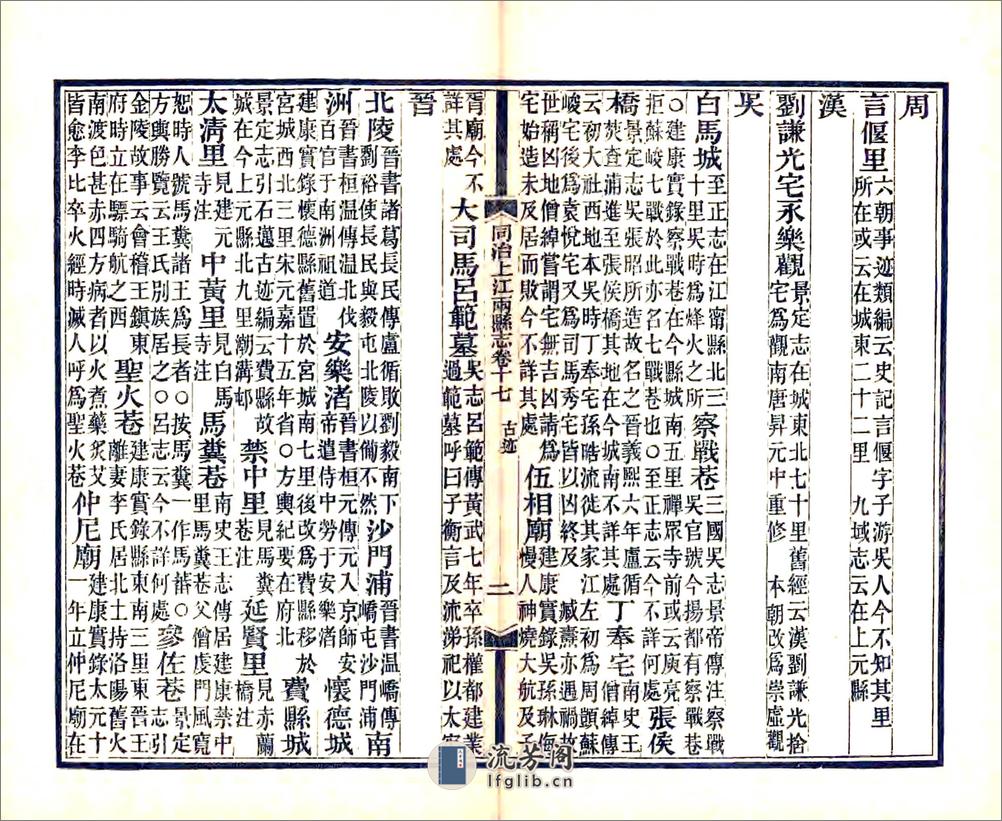 周
言偃里六朝事迹類編云史記言偃字子游吳人今不知其里所在或云在城東二十二里 九域志云在上元縣
漢
劉謙光宅永樂觀景定志在城東北七十里舊經云漢劉謙光捨宅爲觀南唐昇元中重修 本朝改爲崇虛觀
吳
白馬城至正志在江甯縣北三十里吳時烽火之所察戰巷三國吳志景帝傳注察戰吳官號今揚都有察戰巷
○建康實錄察戰巷在今縣城南五里禪眾寺前或云庾亮拒蘇峻七戰於此亦名七戰巷也○至正志云今不詳何處張侯
橋景定志吳張昭所造故名之晉義熙六年盧循焚查浦進至張侯橋其地在今城南不詳其處丁奉宅南史王僧綽傳
云初太社西地本吳時丁奉宅孫晧流徙其家江左初爲周顗蘇峻宅後爲袁悅宅又爲司馬秀宅皆以凶終及臧燾亦遇禍故
世稱凶地僧綽嘗謂宅無吉凶請爲宅始造未及居而敗今不詳其處伍相廟建康實錄吳孫琳侮慢人神燒大航及子
同治上江兩縣志卷十七 古迹 二
胥廟今不詳其處大司馬呂範墓吳志呂範傳黃武七年卒孫權都建業過範墓呼曰子衡言及流涕祀以太牢
晉
北陵晉書諸葛長民傳盧循敗劉毅南下劉裕使長民與毅屯北陵以備不然沙門浦晉書温嶠傳嶠屯沙門浦南
洲晉書桓温傳温北伐百官于南洲祖道安樂渚晉書桓元傳元入京師安帝遣侍中勞于安樂渚懷德城
建康實錄懷德縣舊置於宮城南七里後改爲費縣移於宮城西北三里宋元嘉十五年省○方輿紀要在府北費縣城
景定志引石邁古迹編云費縣故城在今上元縣北九里潮溝邨禁中里見馬糞巷注延賢里見赤蘭橋注
太清里見建元寺注中黃里見白馬寺注馬糞巷南史王志傳居建康禁中里馬糞巷父僧虔門風寬
恕時人號馬糞諸王爲長者○按馬糞一作馬蕃○方輿勝覽云王氏別族居之○呂志云今不詳何處參佐巷景定志引
金陵故事云會稽王鎮東府時立在驃騎航之西聖火巷建康實錄縣東南三里東王離妻李氏居北土持洛陽舊火
南渡色甚赤四方病者以火煮藥炙艾皆愈李比卒火經時滅人呼爲聖火巷仲尼廟建康實錄太元十一年立仲尼廟在
流芳阁
lfglib.cn